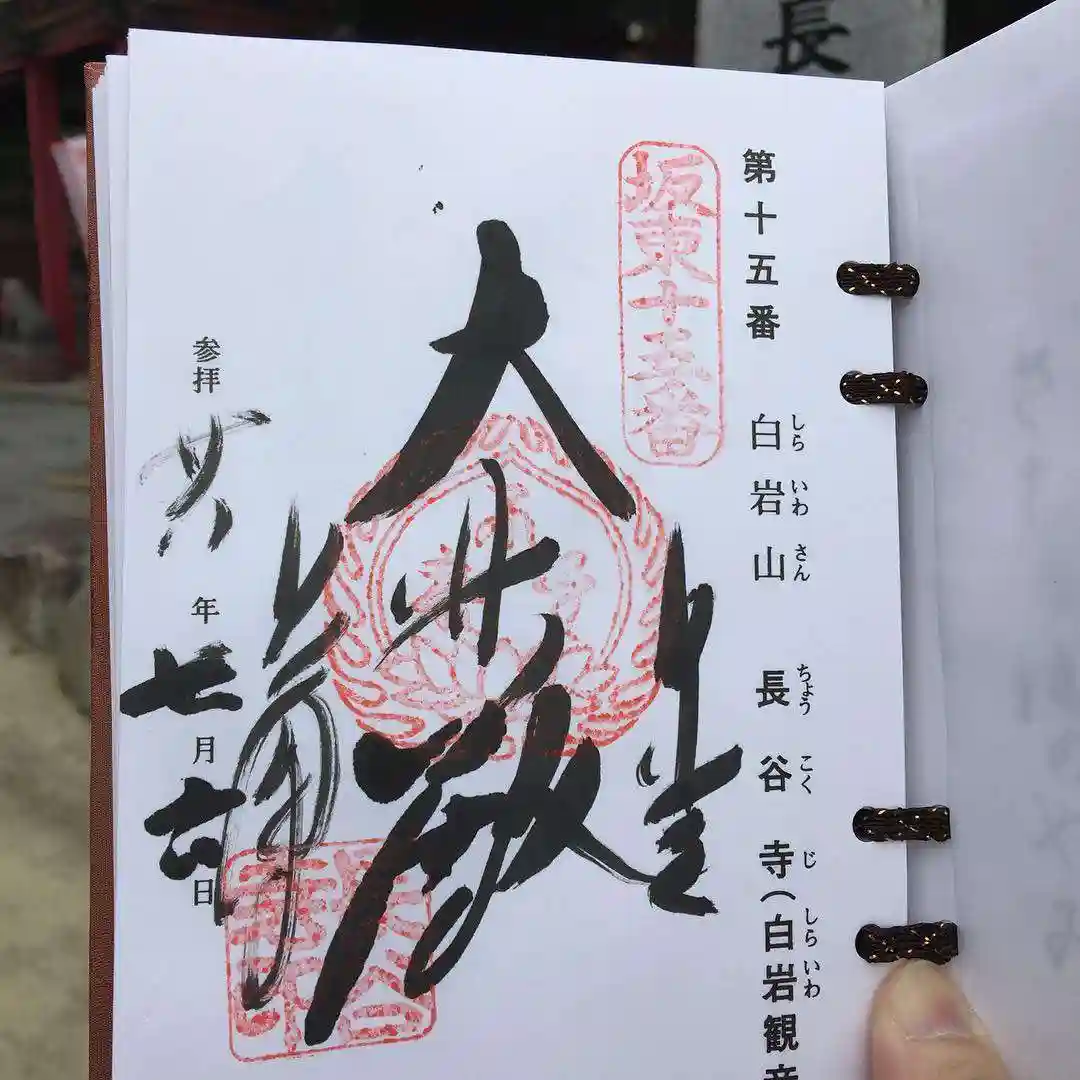 長
しら いわ さん ちょう こく じ しら いわ
第十五番 白岩山 長谷寺(白岩観音
坂東十五番
大悲殿
参拝 廿八年七月六日